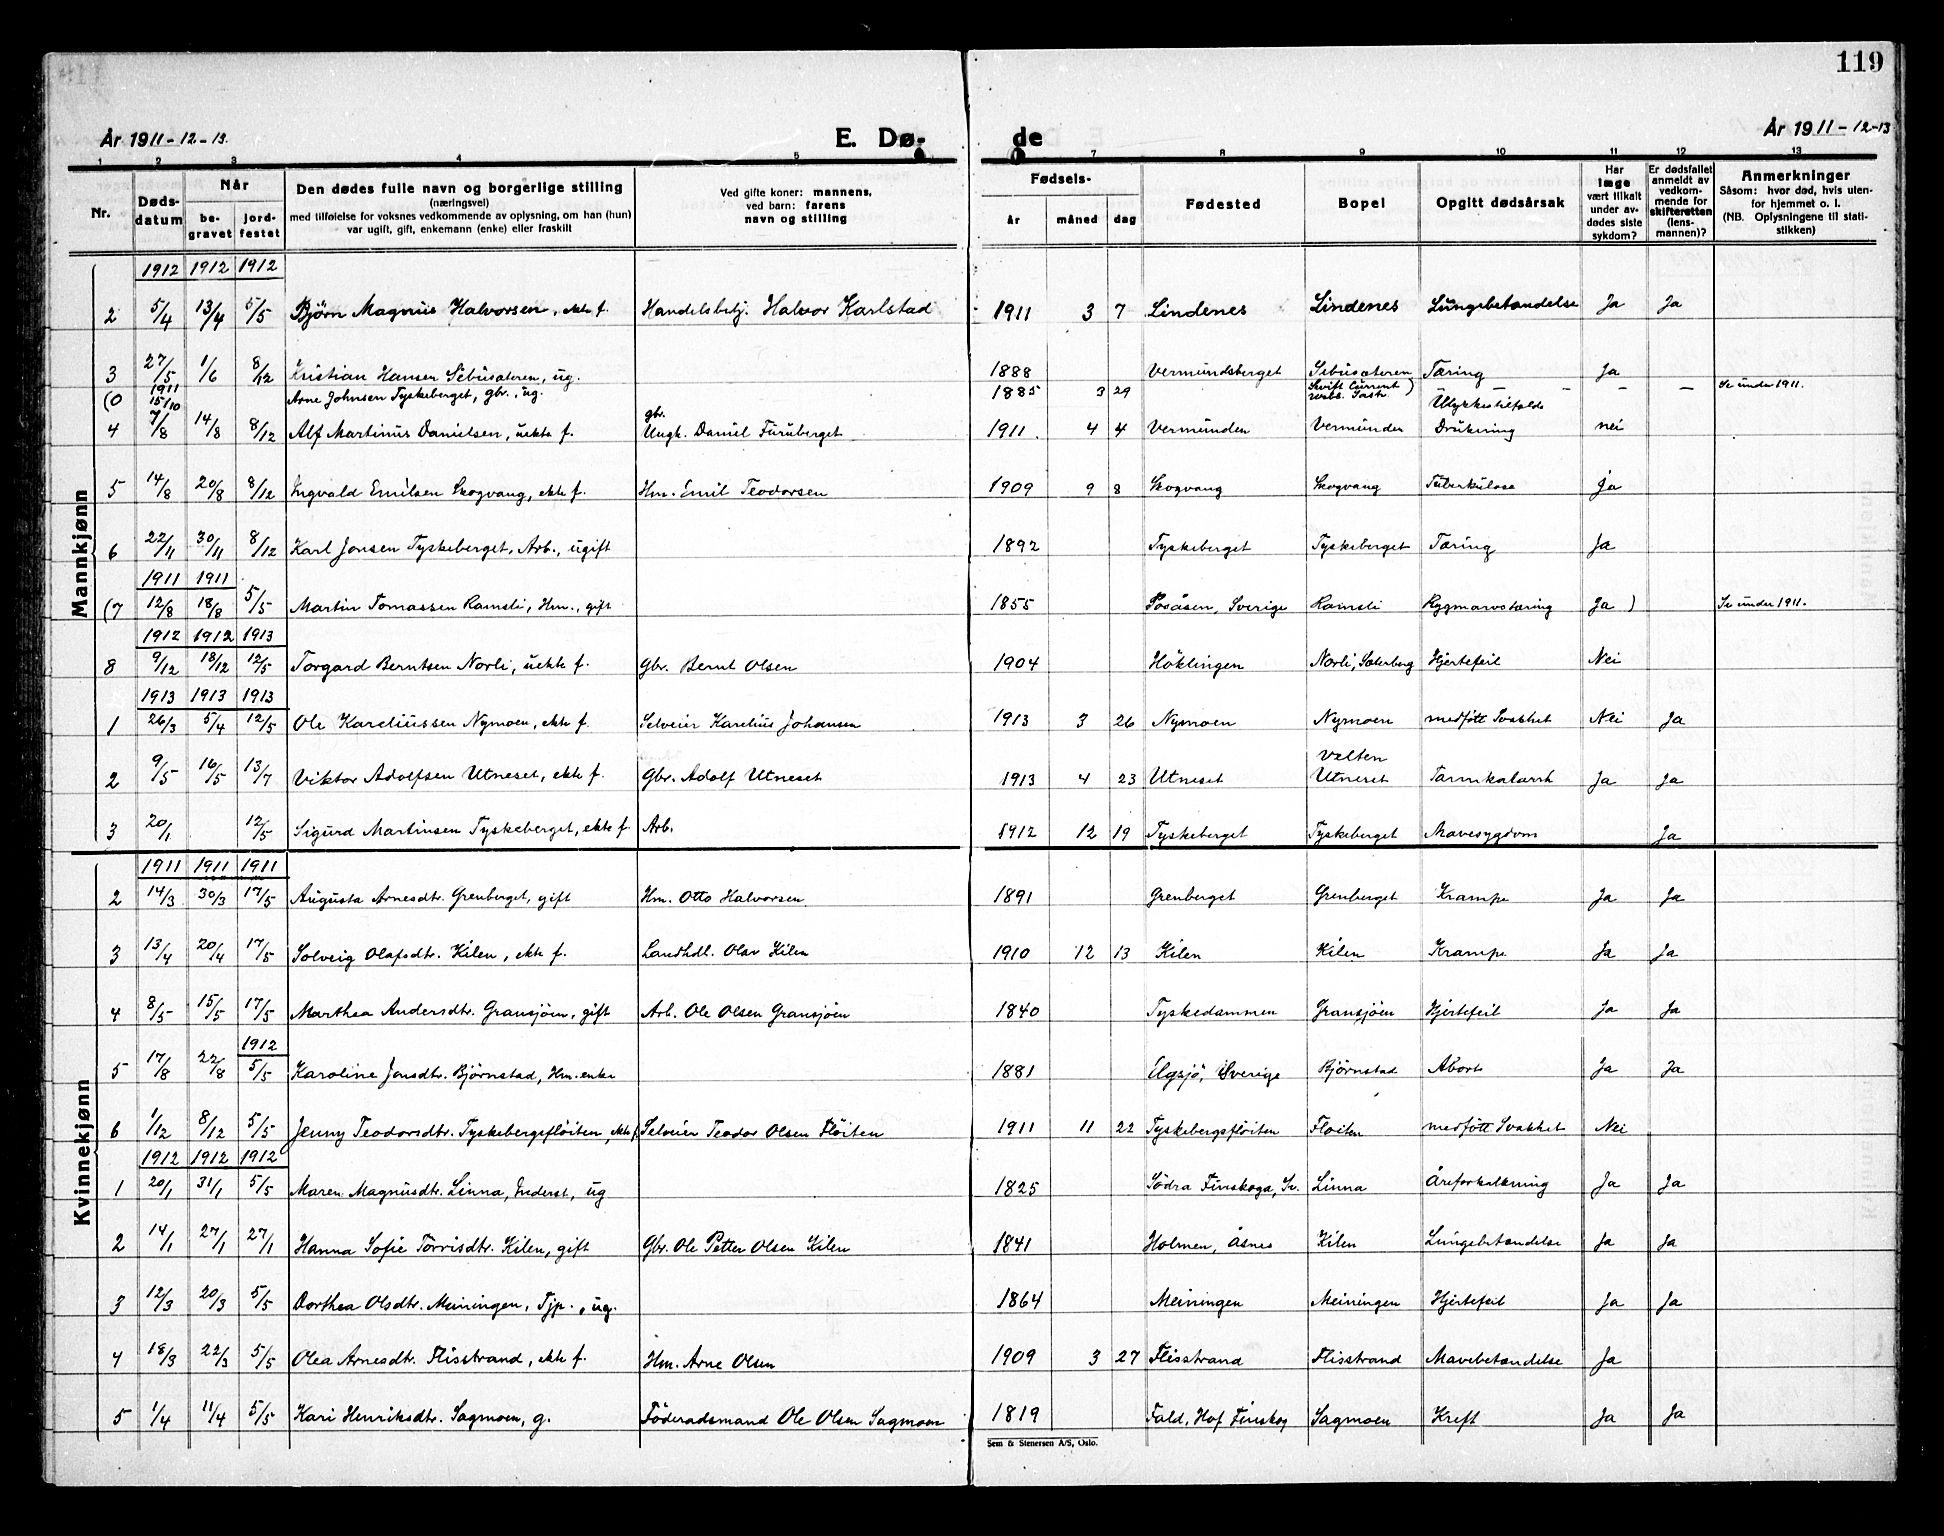 119
År 1911-12-13.
E. Dø-
de
År 1911-12-13
1 2 3 4 5 7 8 9 10 11 12 13
Nr.
Dødsdatum
Når
begravet
jordfestet
Den dødes fulle navn og borgerlige stilling
(næringsvei)
med tilføielse for voksnes vedkommende av oplysning, om han (hun)
var ugift, gift, enkemann (enke) eller fraskilt
Ved gifte koner: mannens,
ved barn: farens
navn og stilling
Fødsels-
år måned dag
Fødested
Bopel
Opgitt dødsårsak
Har læge vært tilkalt under avdødes siste sykdom?
Er dødsfallet anmeldt av vedkommende for skifteretten (lensmannen)?
Anmerkninger
Såsom: hvor død, hvis utenfor hjemmet o. l.
(NB. Oplysningene til statistikken)
Mannkjønn
1912 1912 1912
2 5/4 13/4 5/5 Bjørn Magnus Halvorsen, ekte f. Handelsbetj. Halvor Karlstad 1911 3 7 Lindenes Lindenes Lungebetændelse Ja Ja
3 27/5 1/6 8/12 Kristian Hansen Sebusæteren, ug. 1888 Vermundsberget Sebusæteren Tæring Ja
(0 1911 15/10 Arne Johnsen Tyskeberget, gbr., ug. 1885 3 29 Swift Current Ulykkestilfælde - - Se under 1911.
4 7/8 14/8 8/12 Alf Martinus Danielsen, uekte f. gbr. Ungk. Daniel Furuberget 1911. 4 4 Vermunden Vermunden Drukning nei
5 14/8 20/8 8/12 Ingvald Emilsen Skogvang, ekte f. Hm. Emil Teodorsen 1909 9 8 Skogvang Skogvang Tuberkulose Ja
6 22/11 30/11 8/12 Karl Jonsen Tyskeberget, Arb., ugift 1892 Tyskeberget Tyskeberget Tæring Ja
1911 1911
(7 12/8 18/8 5/5 Martin Tomassen Ramsli, Hm., gift 1855 Posåsen, Sverige Ramsli Rygmarvstæring Ja ) Se under 1911.
1912 1912 1913
8 9/12 18/12 12/5 Torgard Berntsen Norli, uekte f. Gbr. Bernt Olsen 1904 Höklingen Norli, Sæterberg Hjertefeil Nei
1913 1913 1913
1 26/3 5/4 12/5 Ole Kareliussen Nymoen, ekte f. Selveier Karelius Johansen 1913 3 26 Nymoen Nymoen medfött Svakhet Nei Ja
2 9/5 16/5 13/7 Viktor Adolfsen Utneset, ekte f. Gbr. Adolf Utneset 1913 4 23 Utneset Velten Utneset Tarmkatarrh Ja Ja
3 20/1 12/5 Sigurd Martinsen Tyskeberget, ekte f. Arb. 1912 12 19 Tyskeberget Tyskeberget Mavesygdom Ja
Kvinnekjønn
1911 1911 1911
2 14/3 30/3 17/5 Augusta Arnesdtr. Grenberget, gift Hm. Otto Halvorsen. 1891 Grenberget Grenberget Krampe Ja Ja
3 13/4 20/4 17/5 Solveig Olafsdtr. Kilen, ekte f. Landhdl. Olav Kilen 1910 12 13 Kilen Kilen Krampe Ja Ja
4 8/5 15/5 17/5 Marthea Andersdtr. Gransjöen, gift Arb. Ole Olsen Gransjöen 1840 Tyskedammen Gransjöen Hjertefeil Ja Ja
1912
5 17/8 22/8 5/5 Karoline Jonsdtr. Björnstad, Hm.enke 1881 Elgsjö, Sverige Björnstad Abort Ja Ja
6 1/12 8/12 5/5 Jenny Teodorsdtr. Tyskebergsflöiten, ekte f. Selveier Teodor Olsen Flöiten 1911 11 22 Tyskebergsflöiten Flöiten medfött Svakhet Nei
1912 1912 1912
1 20/1 31/1 5/5 Maren Magnusdtr. Linna, Inderst, ug 1825 Södra Finskoga, Sv. Linna Åreforkalkning Ja Ja
2 14/1 27/1 27/1 Hanna Sofie Torrisdtr. Kilen, gift Gbr. Ole Petter Olsen Kilen 1841 Holmen, Åsnes Kilen Lungebetændelse Ja Ja
3 12/3 20/3 5/5 Dorthea Olsdtr. Meiningen, Tjp., ug. 1864 Meiningen Meiningen Hjertefeil Ja Ja
4 18/3 22/3 5/5 Olea Arnesdtr. Flisstrand, ekte f. Hm. Arne Olsen 1909 3 27 Flisstrand Flisstrand Mavebetændelse Ja
5 1/4 11/4 5/5 Kari Henriksdtr. Sagmoen, g. Föderaadsmand Ole Olsen Sagmoen 1819 Fald, Hof Finskog Sagmoen Kreft Ja Ja
Sem & Stenersen A/S, Oslo.